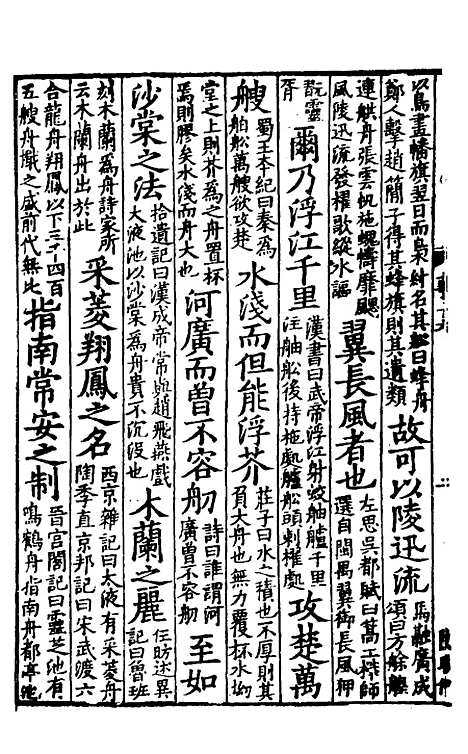 以鳥畫幡旗翌日而梟紂名其船曰蜂舟
鄭人擊趙簡子得其蜂旗則其遺類
故可以陵迅流
馬融廣成
頌曰方餘艎
連舼舟張雲帆施蜺幬靡颸
風陵迅流發櫂歌縱水謳
翼長風者也
左思吳都賦曰篙工檝師
選自閩禺翼御長風狎
翫靈
胥
爾乃浮江千里
漢書曰武帝浮江射蛟舳艫千里
注舳船後持柂處艫船頭刺櫂處
攻楚萬
艘
蜀王本紀曰秦為
舶船萬艘欲攻楚
水淺而但能浮芥
莊子曰水之積也不厚則其
負大舟也無力覆杯水坳
堂之上則芥為之舟置杯
焉則膠矣水淺而舟大也
河廣而曾不容舠
詩曰誰謂河
廣曾不容舠
至如
沙棠之法
拾遺記曰漢成帝常與趙飛燕戲
大液池以沙棠為舟貴不沉沒也
木蘭之麗
任昉述異
記曰魯班
刻木蘭為舟詩家所
云木蘭舟出於此
采菱翔鳳之名
西京雜記曰太液有采菱舟
陶季直京邦記曰宋武渡六
合龍舟翔鳳以下三千四百
五艘舟檝之盛前代無比
指南常安之制
晉宮閣記曰靈芝池有
鳴鶴舟指南舟都亭池